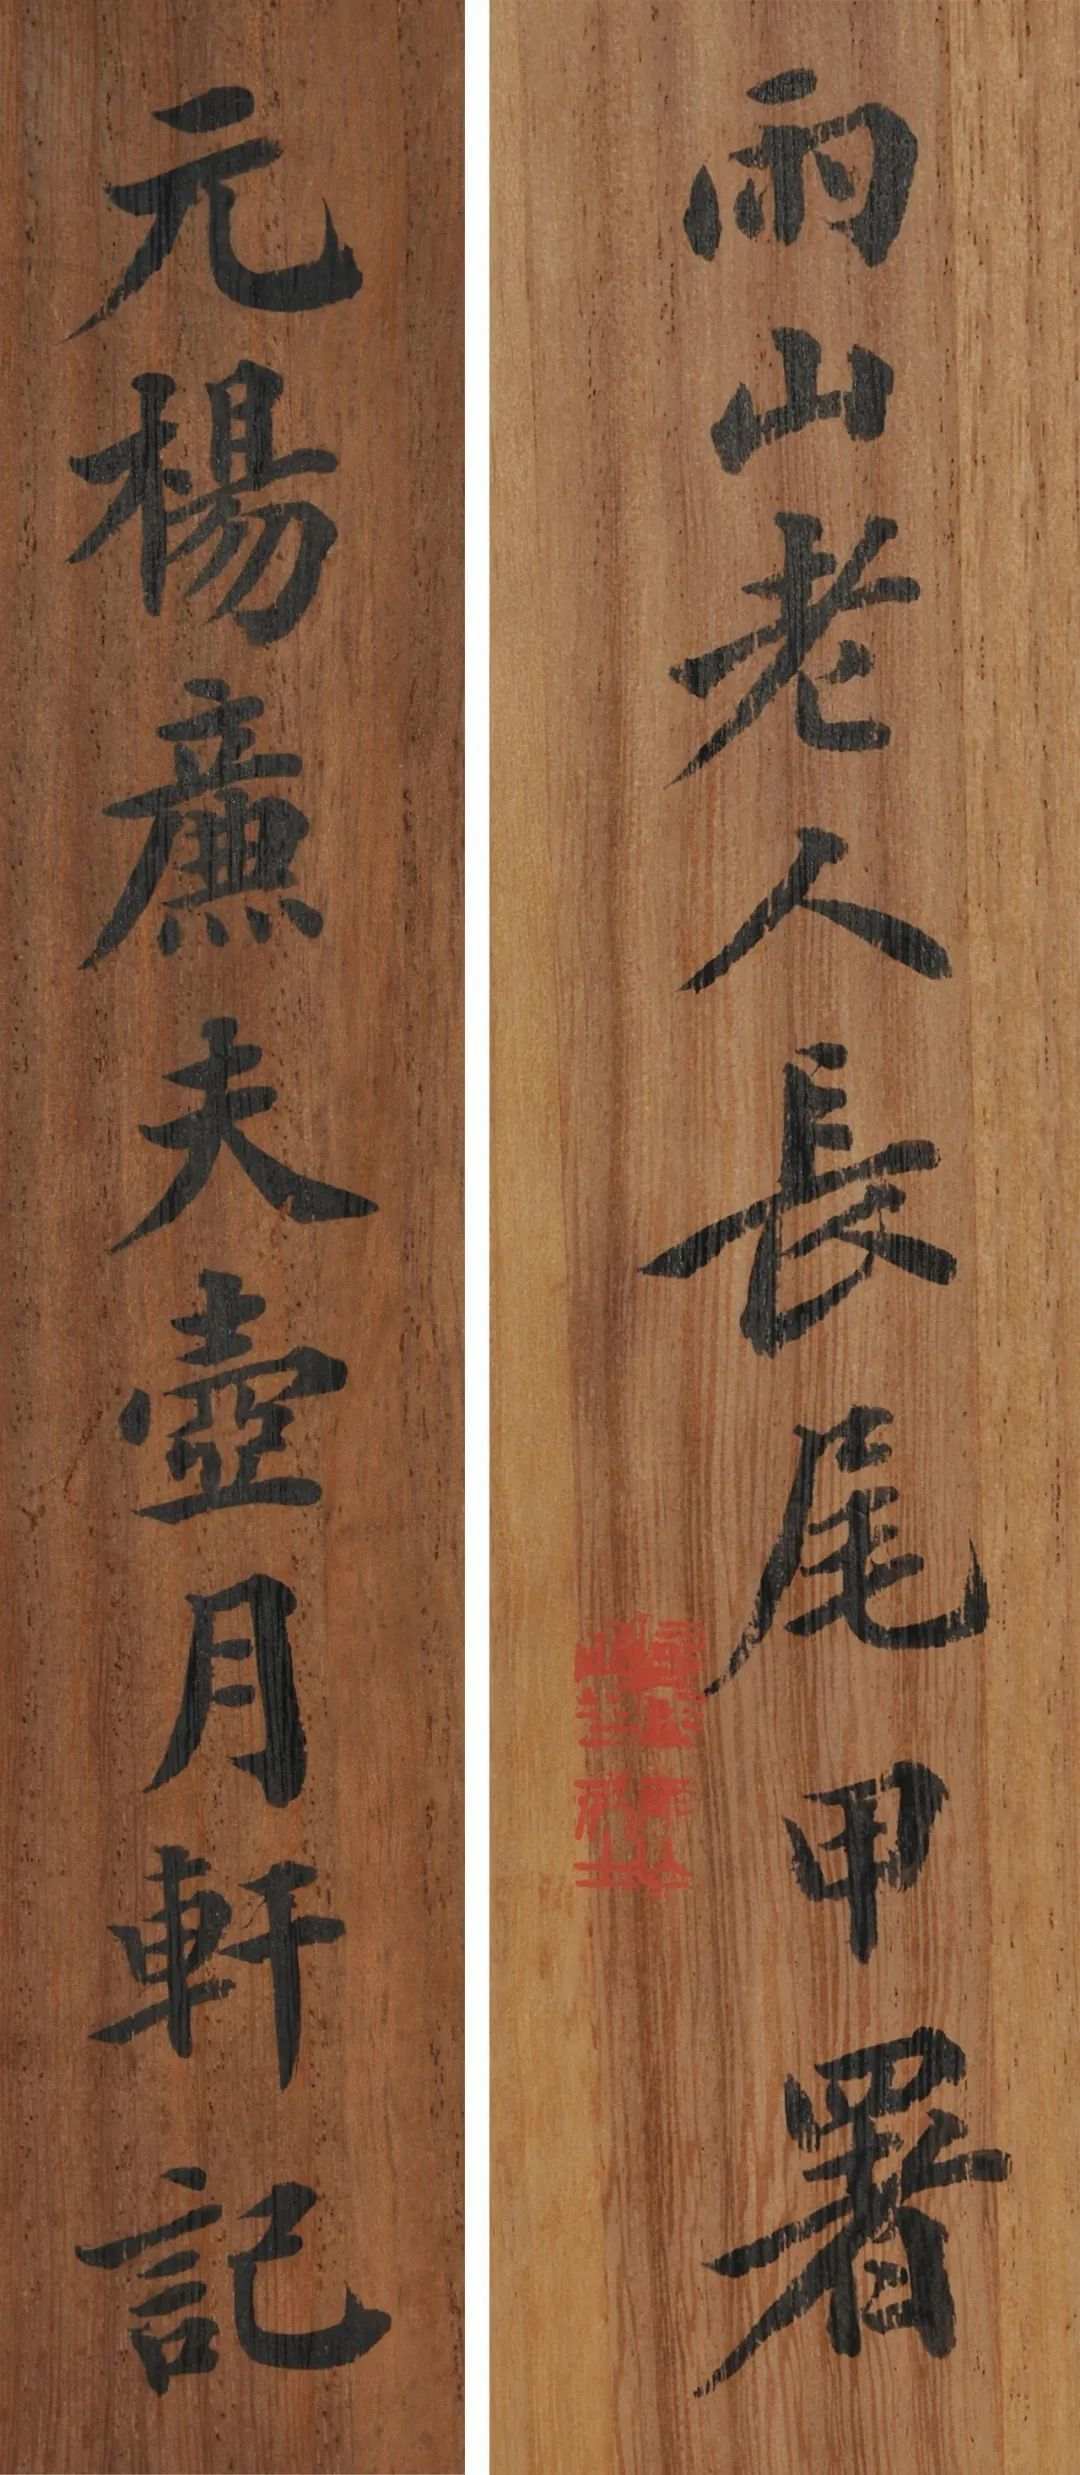 元楊廉夫壺月軒記
雨山老人長尾甲署